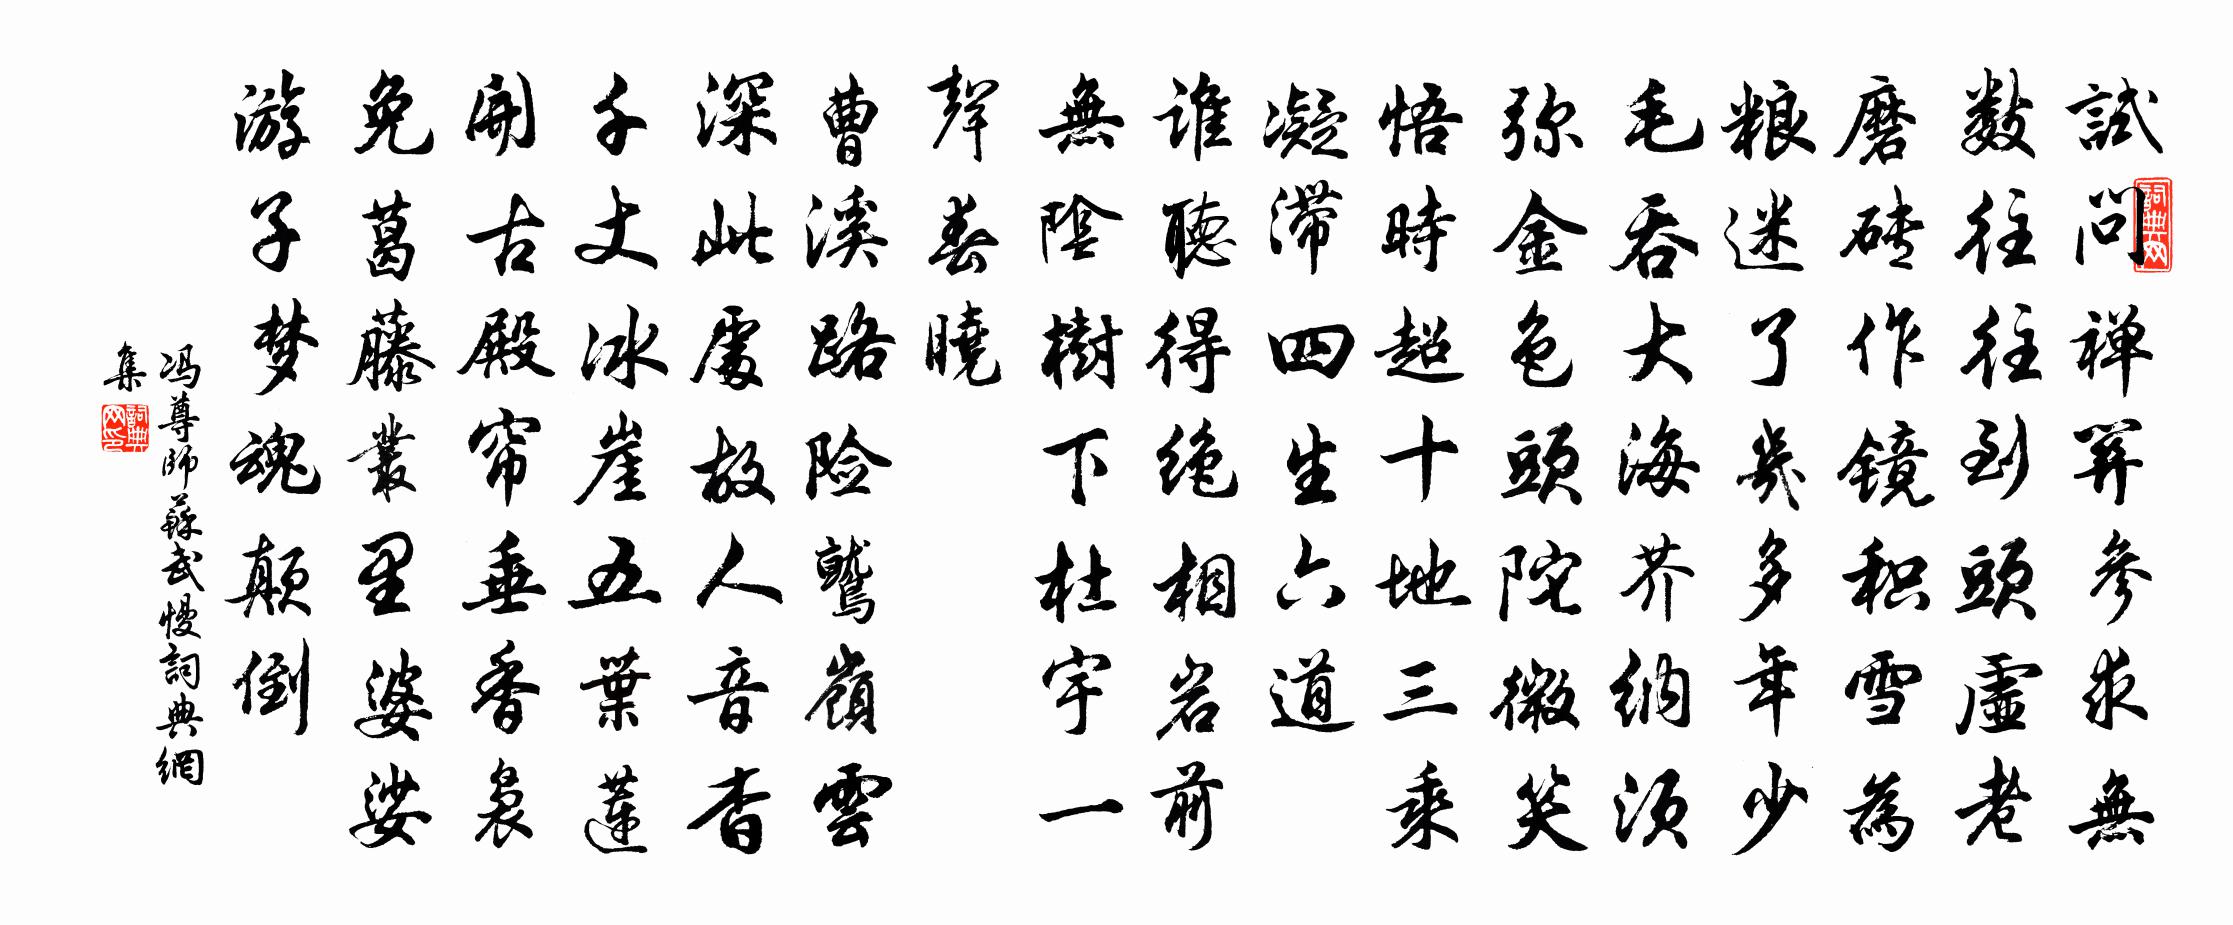 試問禅関参求無
数往往到頭虛老
磨砖作镜积雪為
粮迷了幾多年少
毛吞大海芥納须
弥金色頭陀微笑
悟時超十地三乘
凝滞四生六道
谁聽得绝相岩前
無陰樹下杜宇一
聲春曉
曹溪路险鷲嶺雲
深此處故人音杳
千丈冰崖五葉蓮
開古殿帘垂香裊
免葛藤叢里婆娑
游子梦魂颠倒
冯尊師蘇武慢詞典網
集
詞典网
詞典网印